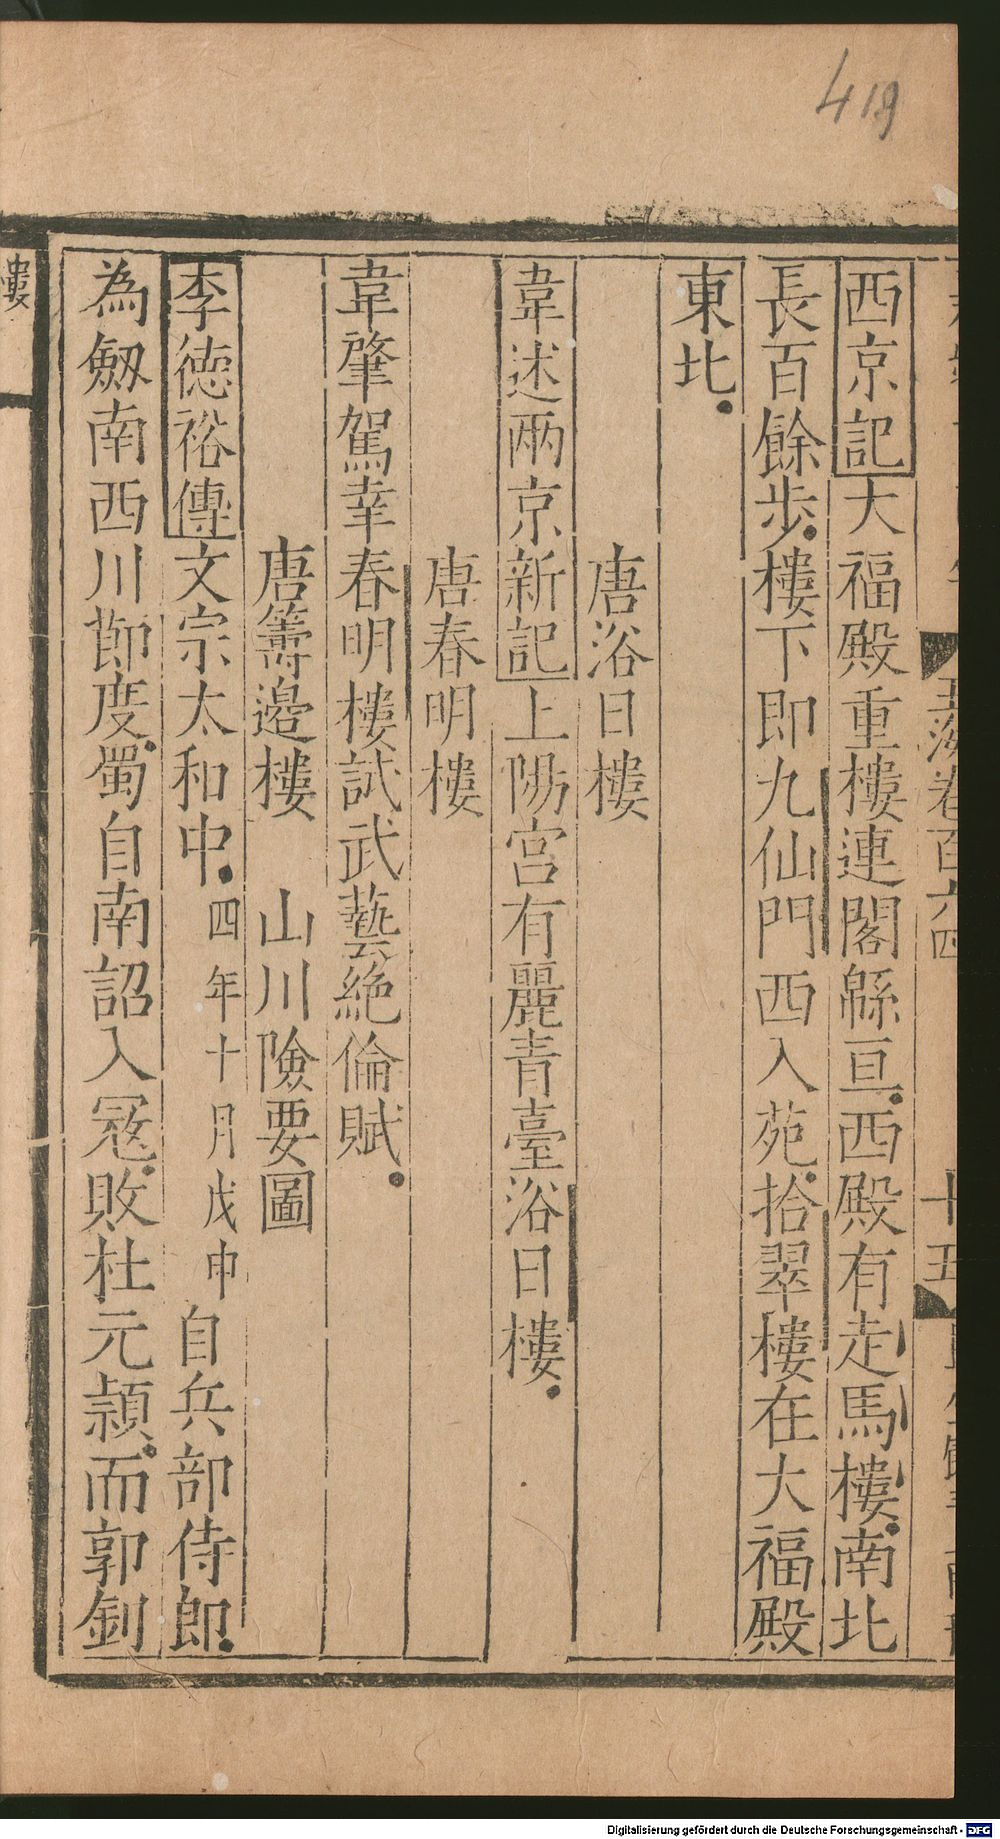 419
玉海卷百六四
十五
西京記大福殿重樓連閣緜亘西殿有走馬樓南北
長百餘步樓下即九仙門西入苑拾翠樓在大福殿
東北
唐浴日樓
韋述兩京新記上陽宮有麗青臺浴日樓
唐春明樓
韋肇駕幸春明樓試武藝絶倫賦
唐籌邊樓 山川險要圖
李徳裕傳文宗太和中四年十月戊申自兵部侍郎
為劔南西川節度蜀自南詔入宼敗杜元頴而郭釗
樓
Digitalisierung gefördert durch die Deutsche Forschungsgemeinschaft - DFG